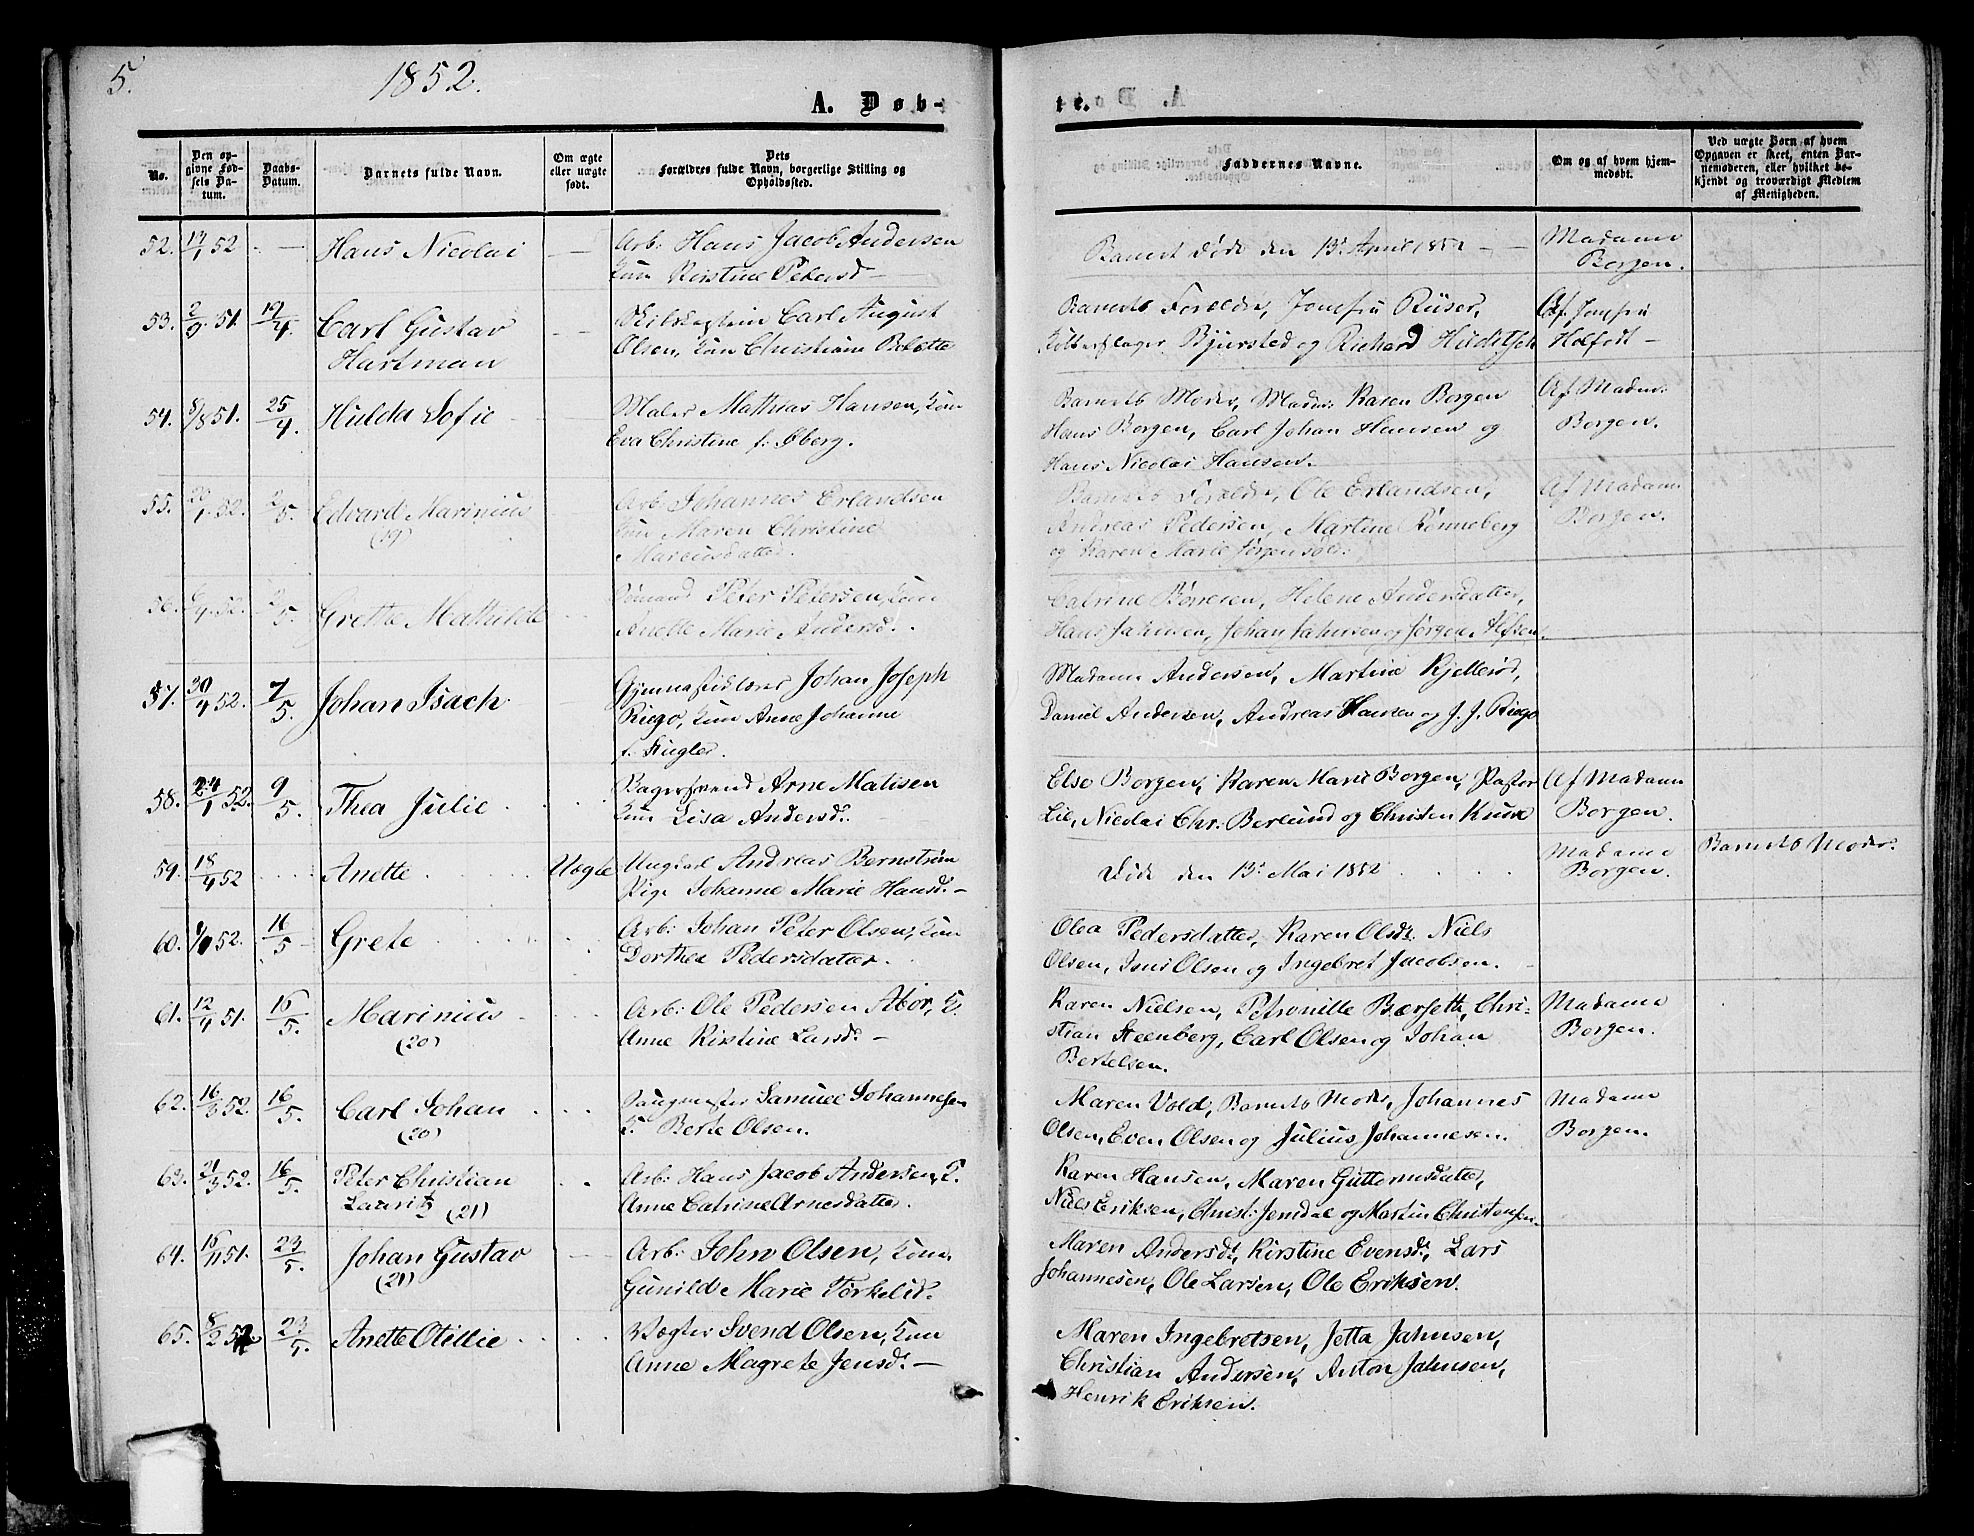 5.
1852.
A. Døb-
te.
No.
Den opgivne Fødsels Datum.
Daabs-Datum.
Barnets fulde Navn.
Om ægte eller uægte født.
Dets Forældres fulde Navn, borgerlige Stilling og Opholdssted.
Faddernes Navne.
Om og af hvem hjemmedøbt.
Ved uægte Børn af hvem Opgaven er skeet, enten Barnemoderen, eller hvilket bekjendt og troværdigt Medlem af Menigheden.
52. 52 Hans Nicolai Arb: Hans Jacob Andersen Barnet døde den 13de April 1852 Madame
Kone Kirstine Petersd. Borgen.
53. 2/9 51. 19/4. Carl Gustav Carl August Barnets Foreldre, Jomfru Rüser, Af Jomfru
Hartman Olsen, Kone Christiane Bjursted og Richard Holfeldt
54. 8/8 51. 25/4. Hulda Sofie Maler Mathias Hansen, Kone Barnets Moder, Madm: Karen Borgen Af Madm:
Eva Christine f. Øberg. Hans Borgen, Carl Johan Hansen og Borgen.
Hans Nicolai Hansen.
55. 52. 2/5. Edvard Marinius Arb: Johannes Erlandsen Barnets Foreldre, Ole Erlandsen, Af Madam
(19) Kone Maren Christine Andreas Pedersen, Martine Rønneberg Borgen.
Marcusdatter. og Karen Marie Jørgensdr.
56. 52. 2/5. Grette Mathilde Sømand Peter Petersen, Kone Catrine Børresen, Helene Andersdatter,
Anette Marie Andersd. Hans Jahnsen, Johan Jahnsen og Jørgen Alfsen.
57. 30/4 52. 7/5. Johan Isach Gymnastiklærer Johan Joseph Madam Andersen, Martine Kjellerød,
Riego, Kone Anne Johanne Daniel Andersen, Andreas Hansen og J. J. Riego
f. Kugler.
58. 24/1 52. 9/5. Thea Julie Bagersvend Arne Matisen Else Borgen, Karen Marie Borgen, Pastor Af Madam
Kone Lisa Andersd. Lie, Nicolai Chr: Berlund og Christen Kruse Borgen.
59. 18/4 52 Anette Uægte Ungkarl Andreas Bernstrøm Døde den 13de Mai 1852 Madame Barnets Moder.
Pige Johanne Marie Hansd. Borgen.
60. 52. 11/5 Grete Arb: Johan Peter Olsen, Kone Olea Pedersdatter, Karen Olsdr. Niels
Dorthea Pedersdatter. Olsen, Jens Olsen og Ingebret Jacobsen.
61. 12/4 51. 16/5. Marinius Arb: Ole Pedersen Abor, K. Karen Nielsen, Petronille Bærsette, Chri- Madame
(20) Anne Kirstine Larsd. stian Steenberg, Carl Olsen og Johan Borgen.
Bertelsen.
62. 16/3 52. 16/5. Carl Johan Saugmester Samuel Johannesen Maren Vold, Barnets Moder, Johannes Madame
(20) K. Berte Olsen. Olsen, Even Olsen og Julius Johannesen. Borgen.
63. 21/3 52. 16/5. Peter Christian Arb: Hans Jacob Andersen, K. Karen Hansen, Maren Guttormsdatter,
Lauritz (21) Anne Catrine Arnesdatter. Niels Eriksen, Christ: Jemdal og Martin Christensen.
64. 16/11 51. 23/5. Johan Gustav Arb: John Olsen, Kone Maren Andersd., Kirstine Evensd., Lars
(21) Gunild Marie Torkelsd. Johannesen, Ole Larsen, Ole Eriksen.
65. 8/2 52 23/5. Anette Otillie Vægter Svend Olsen, Kone Maren Ingebretsen, Jetta Jahnsen,
Anne Magrete Jensd. Christian Andersen, Anton Jahnsen,
Henrik Eriksen.